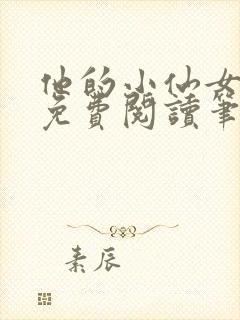 他的小仙女
免費閱讀筆
素辰